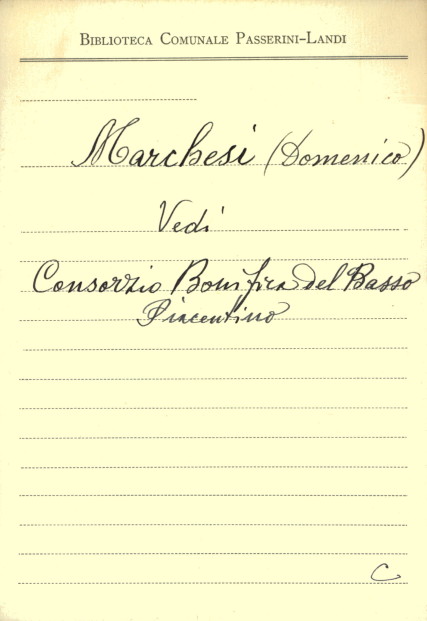 Biblioteca Comunale Passerini-Landi
Marchesi (Domenico)
Vedi
Consorzio Bonifica del Basso
Piacentino
C